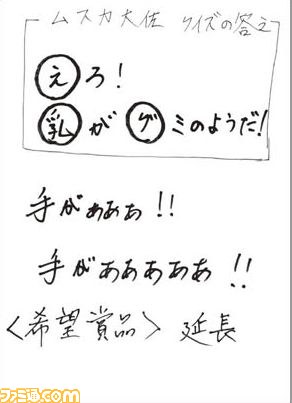 ムスカ大佐 クイズの答え
えろ!
乳がグミのようだ!
手がぁぁぁ!!
手がああああ!!
<希望賞品> 延長
ファミ通.com